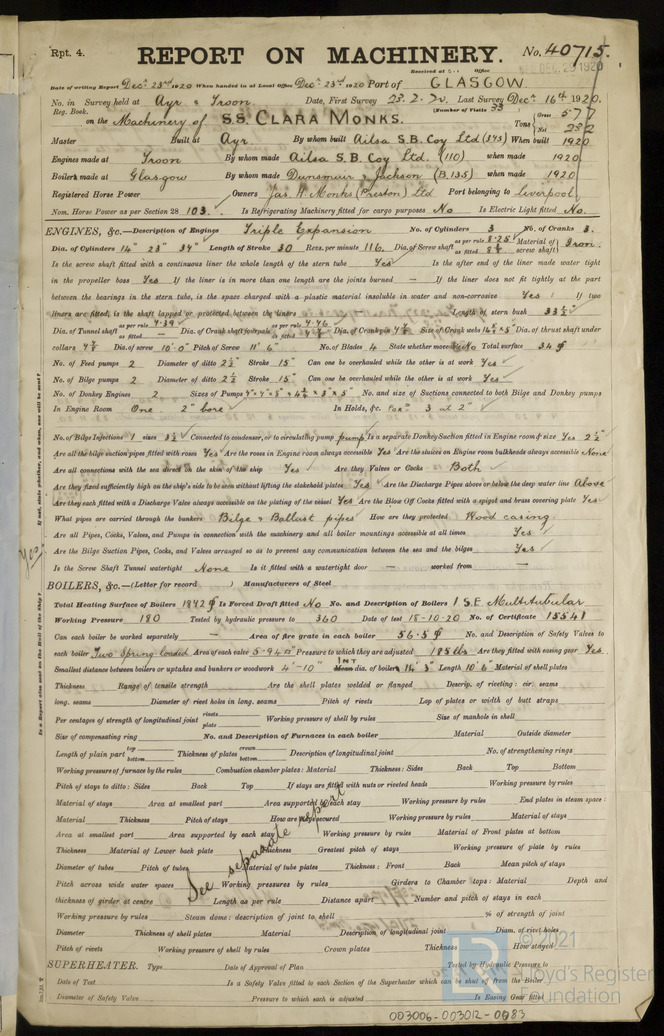 Rpt. 4. REPORT ON MACHINERY. No. 40715.
Received at Office
Date of writing Report Decr 23rd 1920 When handed in at Local Office Decr 23rd 1920 Port of GLASGOW.
No. in Survey held at Ayr & Troon. Date, First Survey 23.2.20. Last Survey Decr 16th 1920.
Reg. Book. (Number of Visits 33
on the Machinery of S.S. CLARA MONKS. Tons Gross 577 Net 232
Master Built at Ayr By whom built Ailsa S.B. Coy Ltd (343) When built 1920
Engines made at Troon By whom made Ailsa S.B. Coy Ltd. (110) when made 1920
Boilers made at Glasgow By whom made Dunsmuir & Jackson (B.135) when made 1920
Registered Horse Power Owners Jas. H. Monks (Preston) Ltd Port belonging to Liverpool
Nom. Horse Power as per Section 28 103. Is Refrigerating Machinery fitted for cargo purposes No Is Electric Light fitted No.
ENGINES, &c.—Description of Engines Triple Expansion No. of Cylinders 3 No. of Cranks 3.
Dia. of Cylinders 14" 23" 34" Length of Stroke 30 Revs. per minute 116. Dia. of Screw shaft as per rule 8.25 as fitted Material of screw shaft) Iron.
Is the screw shaft fitted with a continuous liner the whole length of the stern tube Yes Is the after end of the liner made water tight
in the propeller boss Yes If the liner is in more than one length are the joints burned — If the liner does not fit tightly at the part
between the bearings in the stern tube, is the space charged with a plastic material insoluble in water and non-corrosive Yes If two
liners are fitted, is the shaft lapped or protected between the liners Length of stern bush 33½
Dia. of Tunnel shaft as per rule 7.39 as fitted — Dia. of Crank shaft journals as per rule as fitted Dia. of Crankpin Size of Crank webs Dia. of thrust shaft under
collars Dia. of screw 10'.0" Pitch of Screw 11'.6" No. of Blades 4 State whether moveable No Total surface 34 ▯
No. of Feed pumps 2 Diameter of ditto 2½ Stroke 15" Can one be overhauled while the other is at work Yes
No. of Bilge pumps 2 Diameter of ditto 2½ Stroke 15" Can one be overhauled while the other is at work Yes
No. of Donkey Engines 2 Sizes of Pumps No. and size of Suctions connected to both Bilge and Donkey pumps
In Engine Room One 2" bore In Holds, &c. 3 at 2"
No. of Bilge Injections 1 sizes 3½ Connected to condenser, or to circulating pump pump Is a separate Donkey Suction fitted in Engine room & size Yes 2½
Are all the bilge suction pipes fitted with roses Yes Are the roses in Engine room always accessible Yes Are the sluices on Engine room bulkheads always accessible None
Are all connections with the sea direct on the skin of the ship Yes Are they Valves or Cocks Both
Are they fixed sufficiently high on the ship's side to be seen without lifting the stokehold plates Yes Are the Discharge Pipes above or below the deep water line Above
Are they each fitted with a Discharge Valve always accessible on the plating of the vessel Yes Are the Blow Off Cocks fitted with a spigot and brass covering plate Yes
What pipes are carried through the bunkers Bilge & Ballast pipes How are they protected Wood casing
Are all Pipes, Cocks, Valves, and Pumps in connection with the machinery and all boiler mountings accessible at all times Yes
Are the Bilge Suction Pipes, Cocks, and Valves arranged so as to prevent any communication between the sea and the bilges Yes
Is the Screw Shaft Tunnel watertight None Is it fitted with a watertight door — worked from —
BOILERS, &c.—(Letter for record ) Manufacturers of Steel
Total Heating Surface of Boilers 1842 ▯ Is Forced Draft fitted No No. and Description of Boilers 1 S.E. Multitubular
Working Pressure 180 Tested by hydraulic pressure to 360 Date of test 15-10-20 No. of Certificate 15541
Can each boiler be worked separately — Area of fire grate in each boiler 56.5 ▯ No. and Description of Safety Valves to
each boiler Two Spring loaded Area of each valve 5.94 ▯" Pressure to which they are adjusted 185 lbs Are they fitted with easing gear Yes
Smallest distance between boilers or uptakes and bunkers or woodwork 4'-10" INT Mean dia. of boilers 14' 3" Length 10' 6" Material of shell plates
Thickness Range of tensile strength Are the shell plates welded or flanged Descrip. of riveting: cir. seams
long. seams Diameter of rivet holes in long. seams Pitch of rivets Lap of plates or width of butt straps
Per centages of strength of longitudinal joint rivets plate Working pressure of shell by rules Size of manhole in shell
Size of compensating ring No. and Description of Furnaces in each boiler Material Outside diameter
Length of plain part top bottom Thickness of plates crown bottom Description of longitudinal joint No. of strengthening rings
Working pressure of furnace by the rules Combustion chamber plates: Material Thickness: Sides Back Top Bottom
Pitch of stays to ditto: Sides Back Top If stays are fitted with nuts or riveted heads Working pressure by rules
Material of stays Area at smallest part Area supported by each stay Working pressure by rules End plates in steam space:
Material Thickness Pitch of stays How are stays secured Working pressure by rules Material of stays
Area at smallest part Area supported by each stay Working pressure by rules Material of Front plates at bottom
Thickness Material of Lower back plate Thickness Greatest pitch of stays Working pressure of plate by rules
Diameter of tubes Pitch of tubes Material of tube plates Thickness: Front Back Mean pitch of stays
Pitch across wide water spaces Working pressures by rules Girders to Chamber tops: Material Depth and
thickness of girder at centre Length as per rule Distance apart Number and pitch of stays in each
Working pressure by rules Steam dome: description of joint to shell % of strength of joint
Diameter Thickness of shell plates Material Description of longitudinal joint Diam. of rivet holes
Pitch of rivets Working pressure of shell by rules Crown plates Thickness How stayed
See separate report
SUPERHEATER. Type Date of Approval of Plan Tested by Hydraulic Pressure to
Date of Test Is a Safety Valve fitted to each Section of the Superheater which can be shut off from the Boiler
Diameter of Safety Valve Pressure to which each is adjusted Is Easing Gear fitted
If not, state whether, and when, one will be sent?
Yes
Is a Report also sent on the Hull of the Ship?
© 2021
Lloyd's Register
Foundation
003006-003012-0083